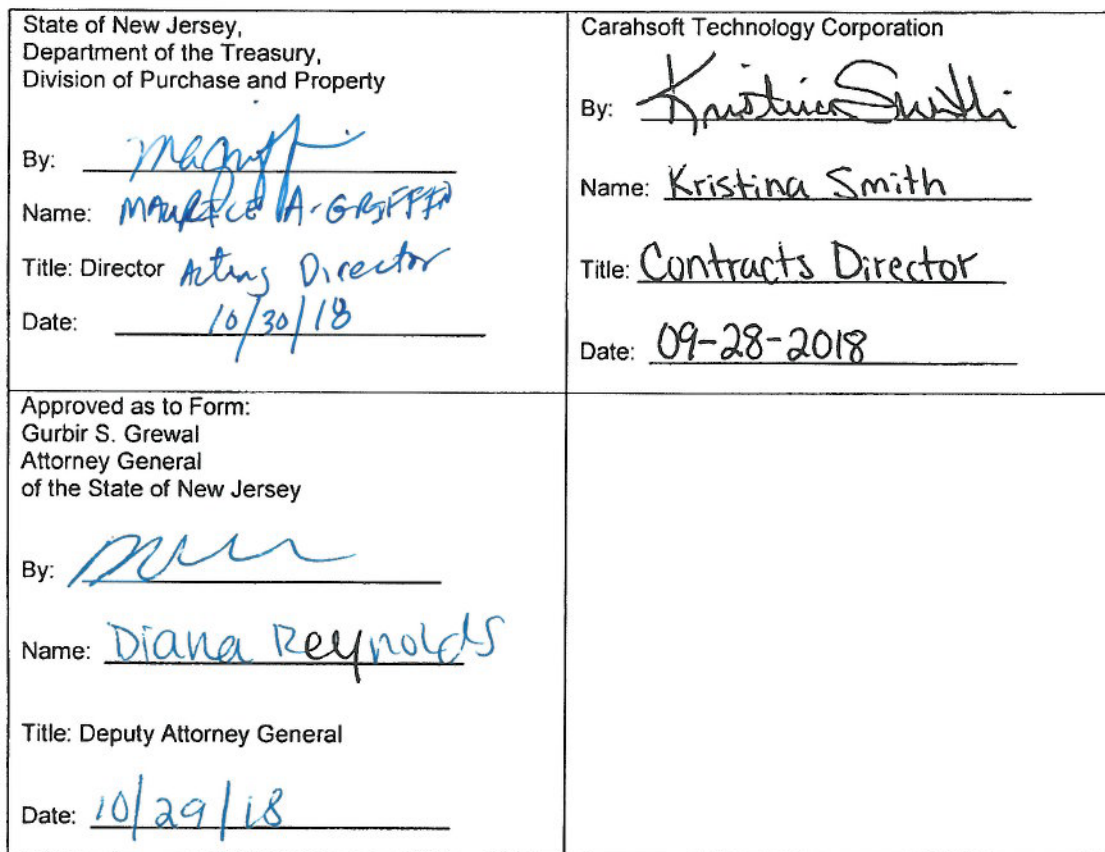 State of New Jersey,
Department of the Treasury,
Division of Purchase and Property
By:
Name: MAURICE A. GRIFFIN
Title: Director Acting Director
Date: 10/30/18
Carahsoft Technology Corporation
By: Kristina Smith
Name: Kristina Smith
Title: Contracts Director
Date: 09-28-2018
Approved as to Form:
Gurbir S. Grewal
Attorney General
of the State of New Jersey
By:
Name: Diana Reynolds
Title: Deputy Attorney General
Date: 10/29/18